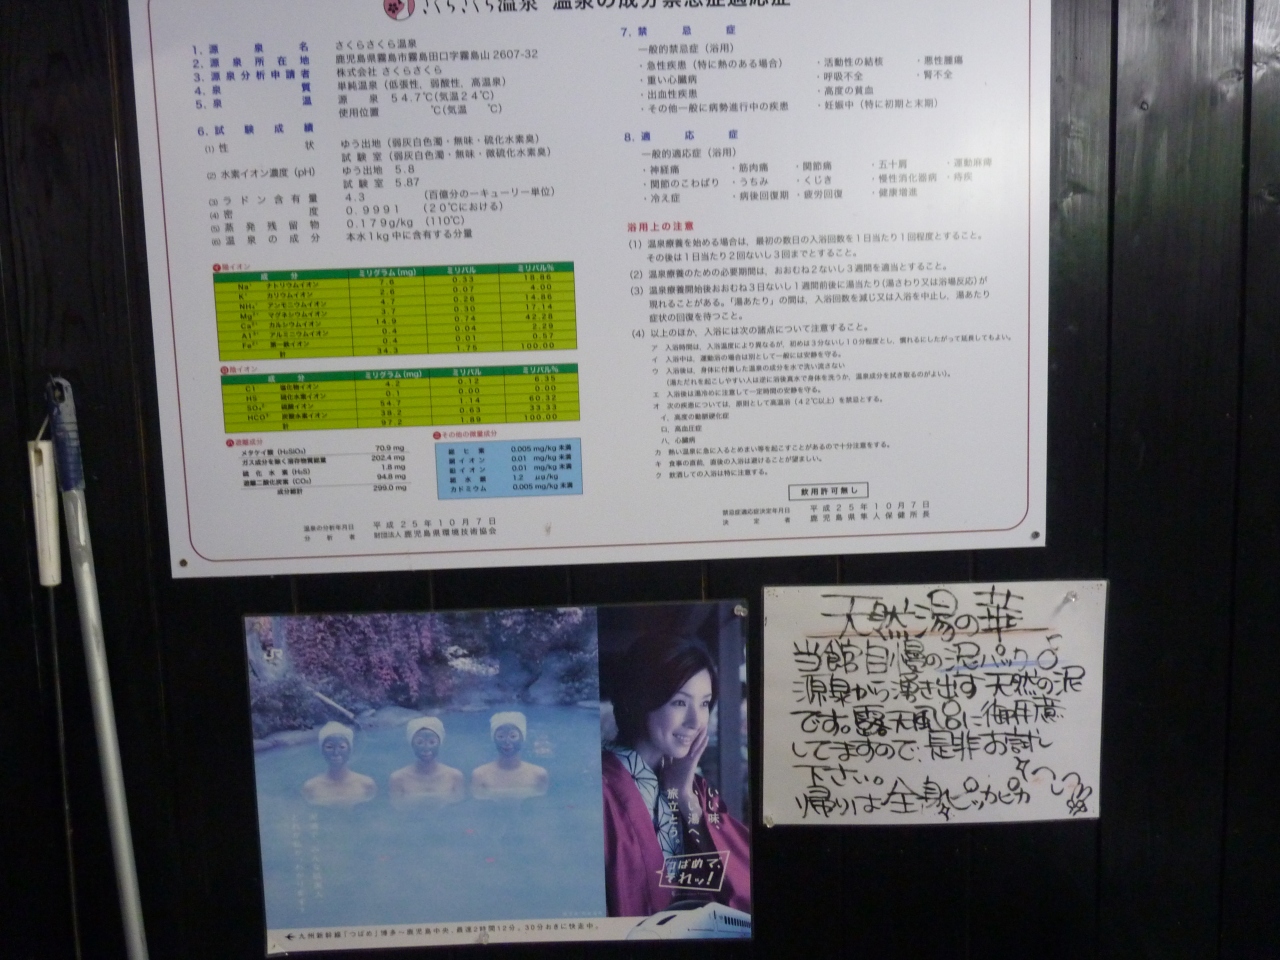 さくらさくら温泉 温泉の成分禁忌症適応症
1. 源泉名 さくらさくら温泉
2. 源泉所在地 鹿児島県霧島市霧島田口字霧島山2607-32
3. 源泉分析申請者 株式会社 さくらさくら
4. 泉質 単純温泉（低張性、弱酸性、高温泉）
5. 泉温 源泉 54.7℃（気温24℃）
使用位置 ℃（気温 ℃）
6. 試験成績
(1) 性状 ゆう出地（弱灰白色濁・無味・硫化水素臭）
試験室（弱灰白色濁・無味・微硫化水素臭）
(2) 水素イオン濃度（pH） ゆう出地 5.8
試験室 5.87
(3) ラドン含有量 4.3 （百億分の一キューリー単位）
(4) 密度 0.9991 （20℃における）
(5) 蒸発残留物 0.179g/kg （110℃）
(6) 温泉の成分 本水1kg中に含有する分量
陽イオン
成分 ミリグラム(mg) ミリバル ミリバル%
Na⁺ ナトリウムイオン 7.6 0.33 18.86
K⁺ カリウムイオン 2.8 0.07 4.00
NH₄⁺ アンモニウムイオン 4.7 0.26 14.86
Mg²⁺ マグネシウムイオン 3.7 0.30 17.14
Ca²⁺ カルシウムイオン 14.9 0.74 42.28
Al³⁺ アルミニウムイオン 0.4 0.04 2.29
Fe²⁺ 第一鉄イオン 0.4 0.01 0.57
計 34.3 1.75 100.00
陰イオン
成分 ミリグラム(mg) ミリバル ミリバル%
Cl⁻ 塩化物イオン 4.2 0.12 6.35
HS⁻ 硫化水素イオン 0.1 0.00 0.00
SO₄²⁻ 硫酸イオン 54.7 1.14 60.32
HCO³⁻ 炭酸水素イオン 38.2 0.63 33.33
計 97.2 1.89 100.00
遊離成分
メタケイ酸（H₂SiO₃） 70.9 mg
ガス成分を除く溶存物質総量 202.4 mg
硫化水素（H₂S） 1.8 mg
遊離二酸化炭素（CO₂） 94.8 mg
成分総計 299.0 mg
その他の微量成分
総ヒ素 0.005 mg/kg 未満
銅イオン 0.01 mg/kg 未満
鉛イオン 0.01 mg/kg 未満
総水銀 1.2 μg/kg
カドミウム 0.005 mg/kg 未満
温泉の分析年月日 平成25年10月7日
分析者 財団法人 鹿児島県環境技術協会
7. 禁忌症
一般的禁忌症（浴用）
・急性疾患（特に熱のある場合） ・活動性の結核 ・悪性腫瘍
・重い心臓病 ・呼吸不全 ・腎不全
・出血性疾患 ・高度の貧血
・その他一般に病勢進行中の疾患 ・妊娠中（特に初期と末期）
8. 適応症
一般的適応症（浴用）
・神経痛 ・筋肉痛 ・関節痛 ・五十肩 ・運動麻痺
・関節のこわばり ・うちみ ・くじき ・慢性消化器病 ・痔疾
・冷え症 ・病後回復期 ・疲労回復 ・健康増進
浴用上の注意
(1) 温泉療養を始める場合は、最初の数日の入浴回数を1日当たり1回程度とすること。
その後は1日当たり2回ないし3回までとすること。
(2) 温泉療養のための必要期間は、おおむね2ないし3週間を適当とすること。
(3) 温泉療養開始後おおむね3日ないし1週間前後に湯当たり（湯さわり又は浴場反応）が
現れることがある。「湯あたり」の間は、入浴回数を減じ又は入浴を中止し、湯あたり
症状の回復を待つこと。
(4) 以上のほか、入浴には次の諸点について注意すること。
ア 入浴時間は、入浴温度により異なるが、初めは3分ないし10分程度とし、慣れるにしたがって延長してもよい。
イ 入浴中は、運動浴の場合は別として一般には安静を守る。
ウ 入浴後は、身体に付着した温泉の成分を水で洗い流さない
（湯ただれを起こしやすい人は逆に浴後真水で身体を洗うか、温泉成分を拭き取るのがよい）。
エ 入浴後は湯冷めに注意して一定時間の安静を守る。
オ 次の疾患については、原則として高温浴（42℃以上）を禁忌とする。
イ、高度の動脈硬化症
ロ、高血圧症
ハ、心臓病
カ 熱い温泉に急に入るとめまい等を起こすことがあるので十分注意をする。
キ 食事の直前、直後の入浴は避けることが望ましい。
ク 飲酒しての入浴は特に注意する。
飲用許可無し
禁忌症適応症決定年月日 平成25年10月7日
決定者 鹿児島県隼人保健所長
JR
いい味、
いい湯へ、
旅立とう。
つばめで、
←九州新幹線「つばめ」博多～鹿児島中央、最速2時間12分。30分おきに快走中。
天然湯の華
当館自慢の泥パック♪
源泉から湧き出す天然の泥
です。露天風呂に御用意
してますので、是非お試し
下さい。
帰りは全身ピッカピカ